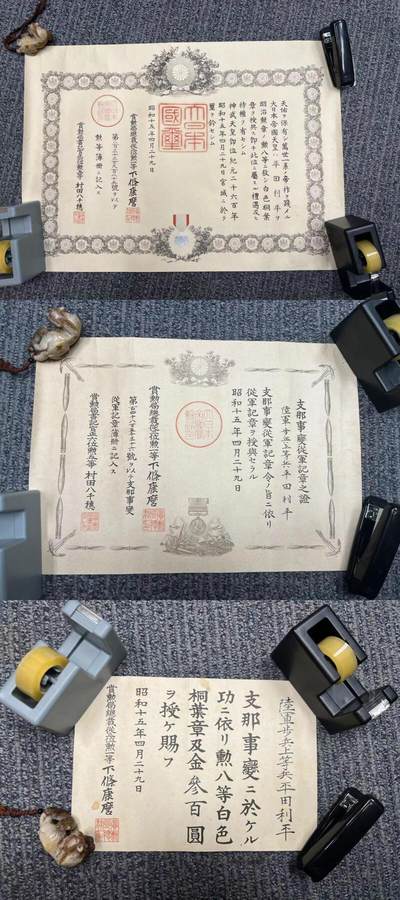 天佑ヲ保有シ萬世一系ノ帝祚ヲ踐メル
大日本帝國天皇ハ平田利平ヲ
明治勲章ノ勲八等ニ敍シ白色桐葉
章ヲ授與ス卽チ此位ニ屬スル禮遇及ヒ
特權ヲ有セシム
神武天皇卽位紀元二千六百年
昭和十五年四月二十九日宮城ニ於テ
璽ヲ鈐セシム
大日本國璽
昭和十五年四月二十九日
賞勲局總裁 勲二等下條康麿
號ヲ以テ
勲等簿冊ニ記入ス
賞勲局書記官 村田八千穂
支那事變從軍記章之證
陸軍歩兵上等兵平田利平
支那事變從軍記章令ノ旨ニ依リ
從軍記章ヲ授與セラル
昭和十五年四月二十九日
賞勲局總裁 勲二等下條康麿
號ヲ以テ支那事變
從軍記章簿冊ニ記入ス
賞勲局書記官正六位勲五等村田八千穂
陸軍歩兵上等兵平田利平
支那事變ニ於ケル
功ニ依リ勲八等白色
桐葉章及金參百圓
ヲ授ケ賜フ
昭和十五年四月二十九日
賞勲局總裁 勲二等下條康麿